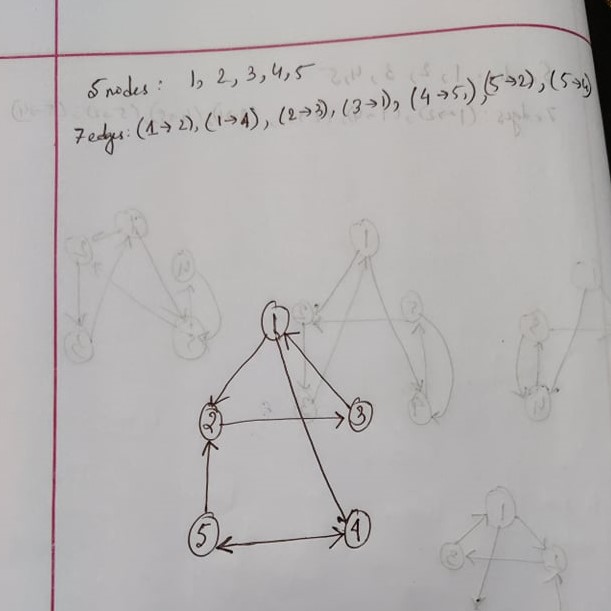 5 nodes: 1, 2, 3, 4, 5
7 edges: (1→2), (1→4), (2→3), (3→1), (4→5,), (5→2), (5→4)
1
2
3
5
4